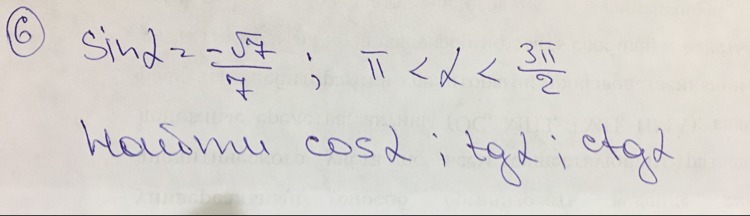 6
sinα = -√7/7 ; π < α < 3π/2
Найти cosα ; tgα · ctgα